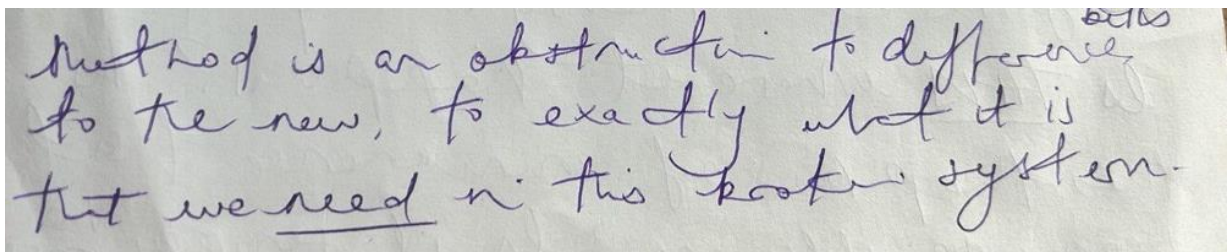 Method is an obstruction to difference
to the new, to exactly what it is
that we need in this broken system.